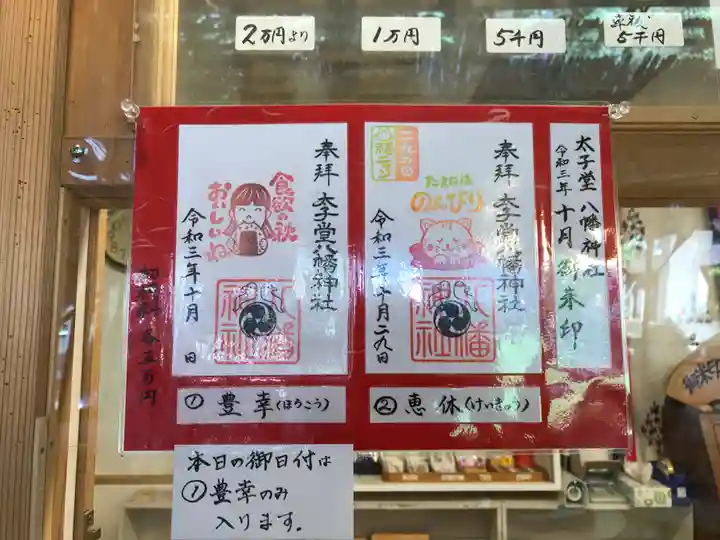 2万円より
1万円
5千円
5千円
太子堂八幡神社
令和三年 十月 御朱印
奉拝 太子堂八幡神社
二九の日
たまには
のんびり
八幡
神社
令和三年十月二九日
② 恵休(けいきゅう)
奉拝 太子堂八幡神社
食欲の秋
おいしいね
八幡
神社
令和三年十月 日
① 豊幸(ほうこう)
本日の御日付は
①豊幸のみ
入ります。